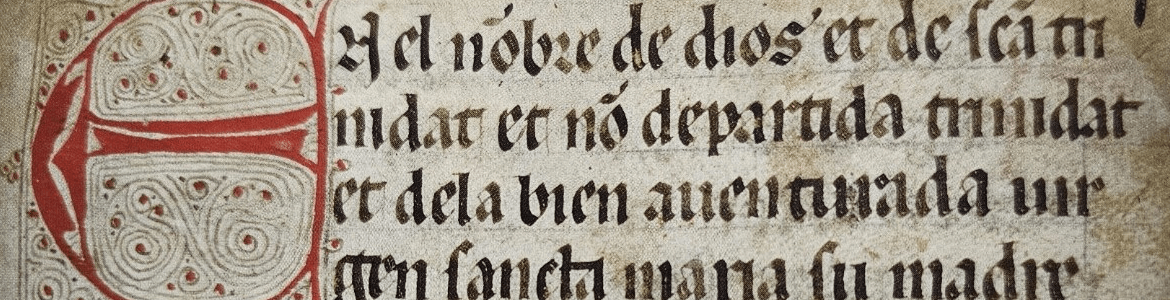 EN el nõbre de dios et de scã tri
nidat et nõ departida trinidat
et dela bien auenturada uir
gen sancta maria su madre